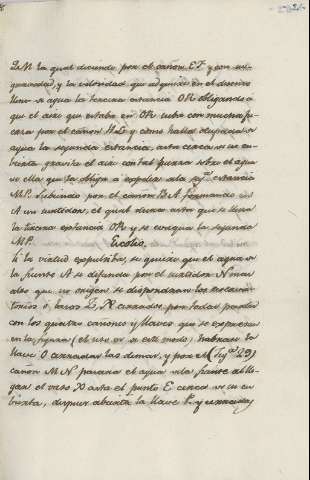 L.N la qual diciende por el cañon E.F y con su
graveda, y la velocidad que adquirio en el decenso
llena de agua la tercera estancia OR obligando à
que el aire que estaba en OR suba con mucha fu-
erza por el cañon H.L y como halla ocupada de
agua la segunda estancia, asta cerca de su cu-
bierta gravita el aire con tal fuerza sobre el agua
de ella que la obliga à salir a la estancia
M.P. subiendo por el cañon B.A. formando en
A un surtidor, el qual durar asta que se llena
la tercera estancia OR y se evaqua la segunda
MP. Escolio.
Si la virtud expulsiba, se quiere que el agua de
la fuente A se difunda por el surtidor N mas
alto que su origen se dispondran los receta-
torios ò baros Z, X cerrados por todas partes
con los quatro cañones y llaves que se expresan
en la figura (el uso es de este modo) habrase la
llave O cerradas las demas, y por el (Fig.ª 129)
cañon M N pasara el agua de la fuente A à lle-
gar el vaso X asta el punto E cerca de su cu-
bierta, despues abierta la llave P. y cerradas